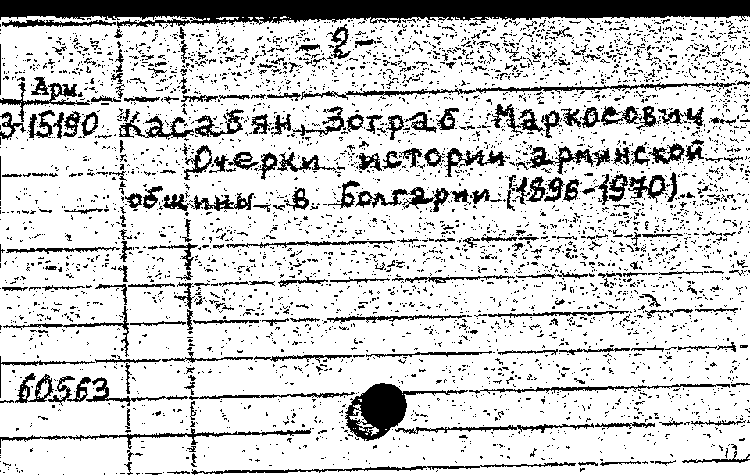 - 2 -
Арм.
3-15190 Касабян, Зограб Маркосович.
Очерки истории армянской
общины в Болгарии (1896-1970).
60563